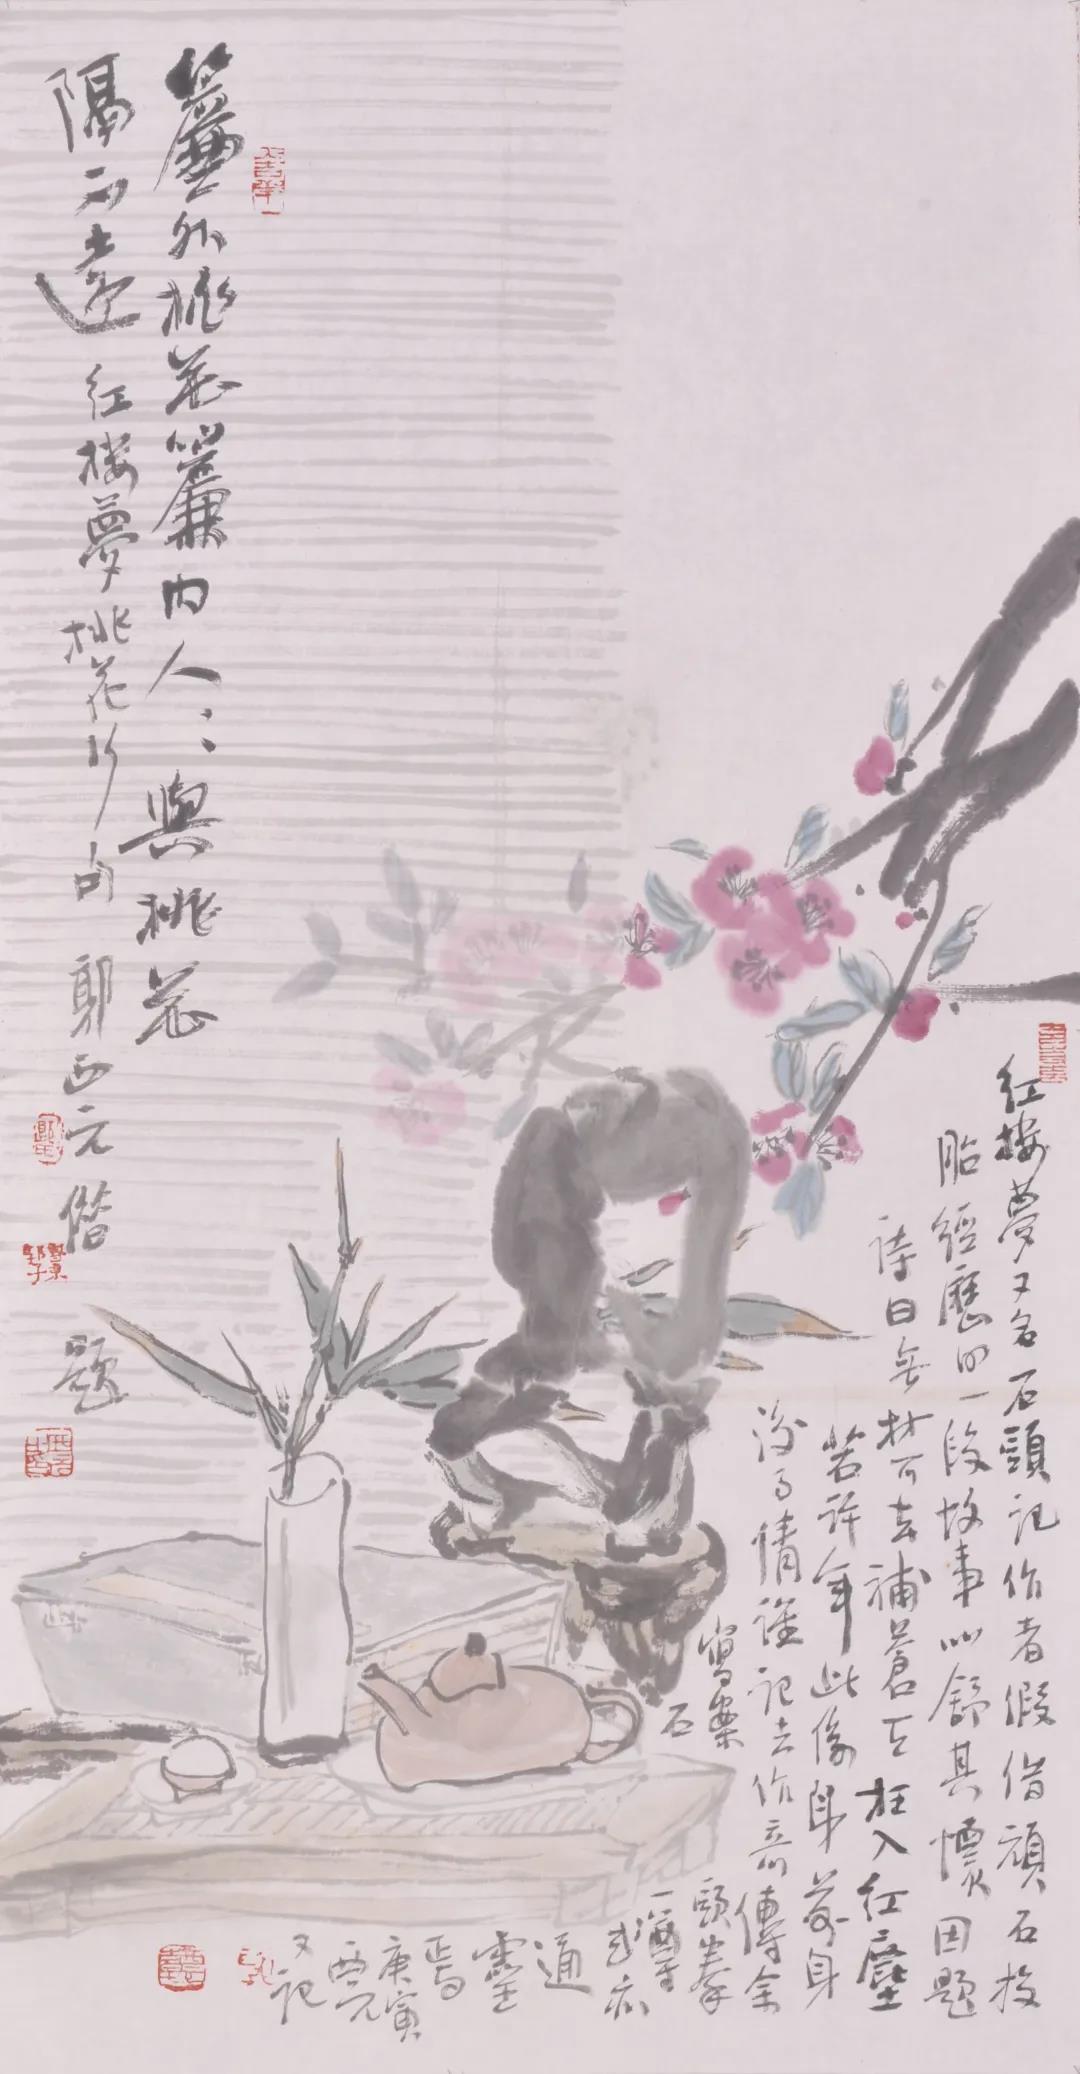 簾外桃花簾內人〻與桃花
隔不遠 紅樓夢桃花行句 郭西元 偕 題
紅樓夢又名石頭記作者假借頑石投
胎經歷的一段故事以舒其懷因題
詩曰無材可去補蒼天枉入紅塵
若許年此係身前身
後事倩誰記去作奇傳余
寫案頭拳
石一尊
或亦
通
靈
焉
庚寅
西元
又記